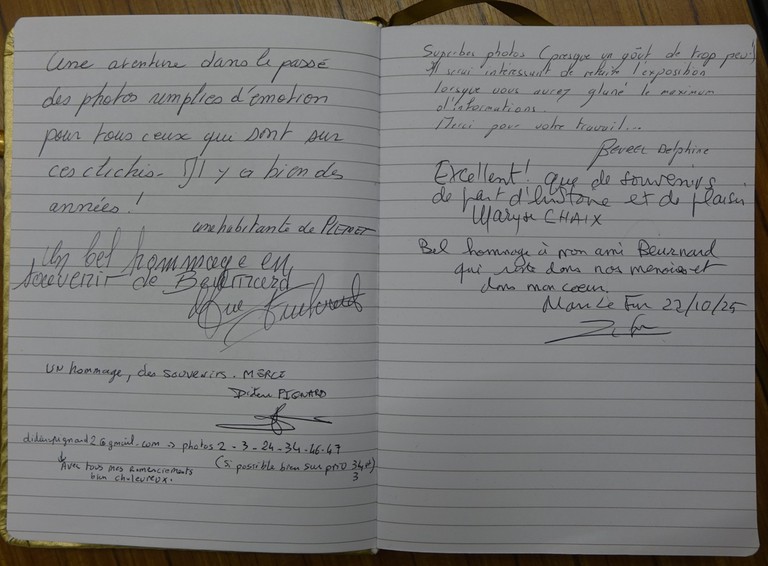 Une aventure dans le passé
des photos remplies d'émotion
pour tous ceux qui sont sur
ces clichés. Il y a bien des
années!
une habitante de
Un bel hommage en
souvenir de
UN hommage, des souvenirs. MERCI
Didier PIGNARD
didierpignard2@gmail.com → photos 2 - 3 - 24 - 34 - 46 - 47
(si possible bien sur prio 34 et
3
Avec tous mes remerciements
bien chaleureux.
Superbes photos (presque un goût de trop peu!)
Il serai intéressant de refaire l'exposition
lorsque vous aurez glané le maximum
d'informations.
Merci pour votre travail...
Delphine
Excellent! que de souvenirs
de part d'histoire et de plaisir
Maryse CHAIX
Bel hommage à mon ami
qui reste dans nos mémoires et
dans mon coeur.
22/10/25